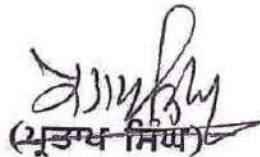 (ਪ੍ਰਤਾਪ ਸਿੰਘ)